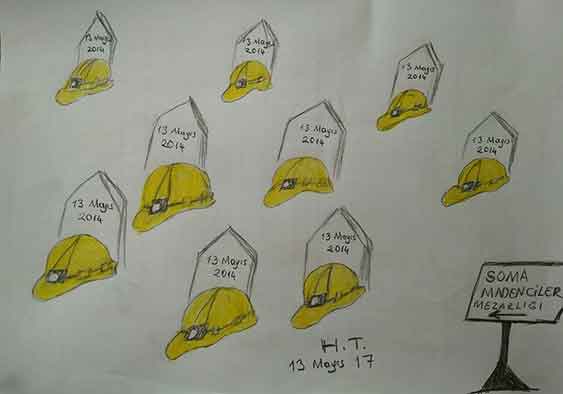 13 Mayıs
2014
13 Mayıs
2014
13 Mayıs
2014
13 Mayıs
2014
13 Mayıs
2014
13 Mayıs
2014
13 Mayıs
2014
13 Mayıs
2014
13 Mayıs
2014
SOMA
MADENCİLER
MEZARLIĞI
H.T.
13 Mayıs 17